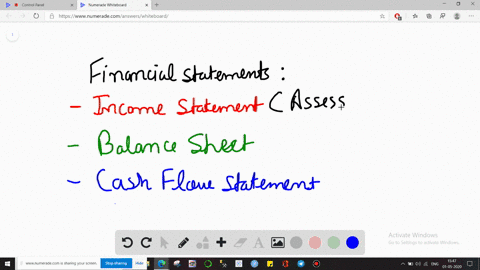 Control Panel
Numerade Whiteboard
https://www.numerade.com/answers/whiteboard/
Financial statements :
- Income Statement ( Assess
- Balance Sheet
- Cash Flow Statement
Activate Windows
Go to Settings to activate Windows.
www.numerade.com is sharing your screen.
Stop sharing
Hide
13:47
05-05-2020